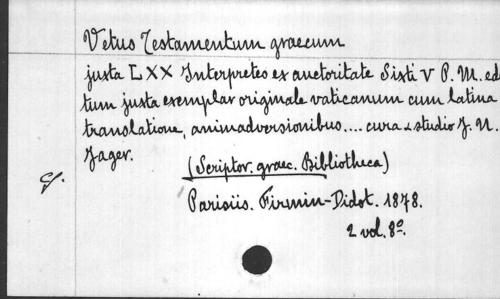 Vetus Testamentum graecum
juxta LXX Interpretes ex auctoritate Sixti V P. M. edi
tum juxta exemplar originale vaticanum cum latina
translatione, animadversionibus.... cura & studio J. N.
Jager.
(Scriptor. graec. Bibliotheca)
Parisiis. Firmin-Didot. 1878.
2 vol. 8º.